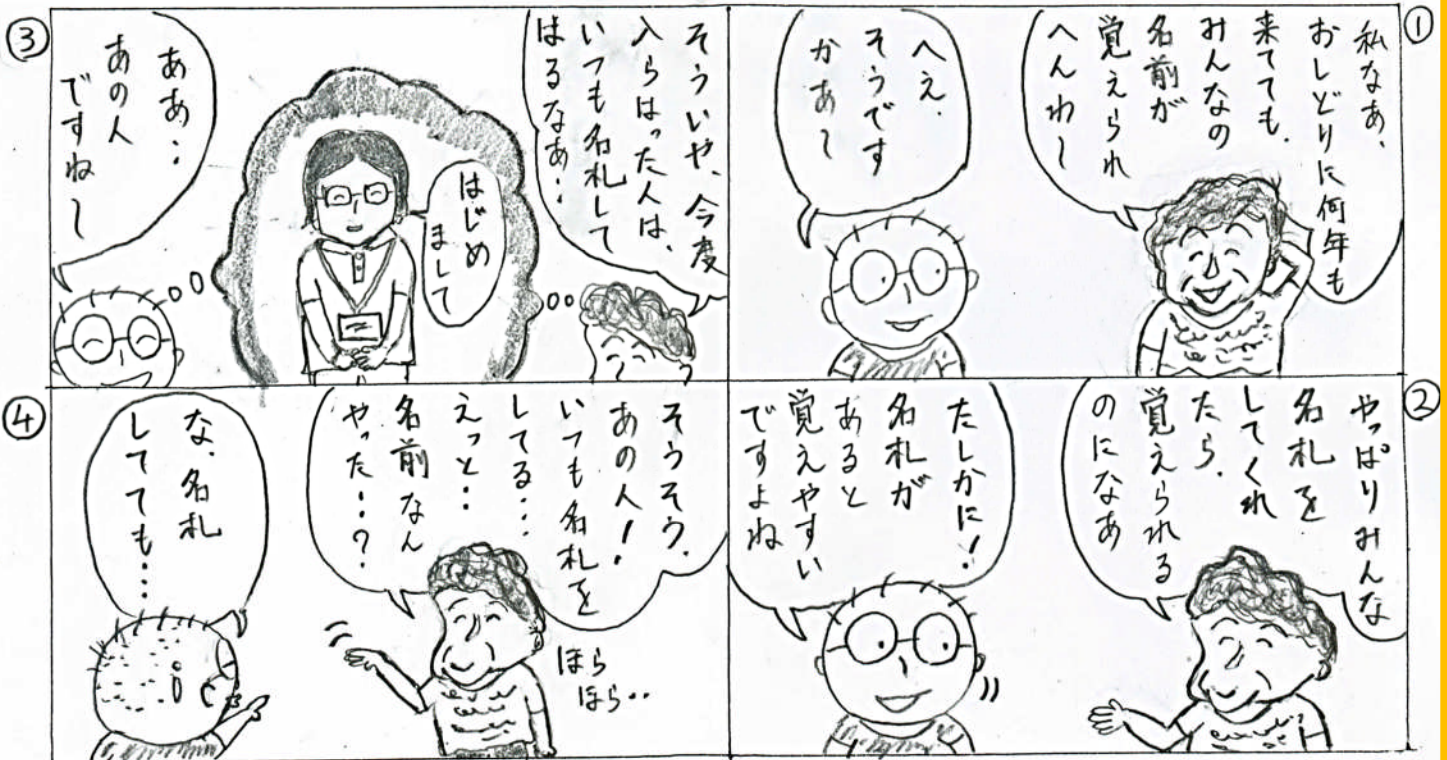 ①
私なあ、
おしどりに何年も
来てても、
みんなの
名前が
覚えられ
へんわ〜
へえ、
そうです
かあ〜
②
やっぱりみんな
名札を
してくれ
たら、
覚えられる
のになあ
たしかに!
名札が
あると
覚えやすい
ですよね
③
そういや、今度
入らはった人は、
いつも名札して
はるなあ‥
はじめ
まして
ああ‥
あの人
ですね〜
④
そうそう、
あの人!
いつも名札を
してる‥‥
えっと‥
名前なん
やった‥・?
ほら
ほら‥
な、名札
してても‥・